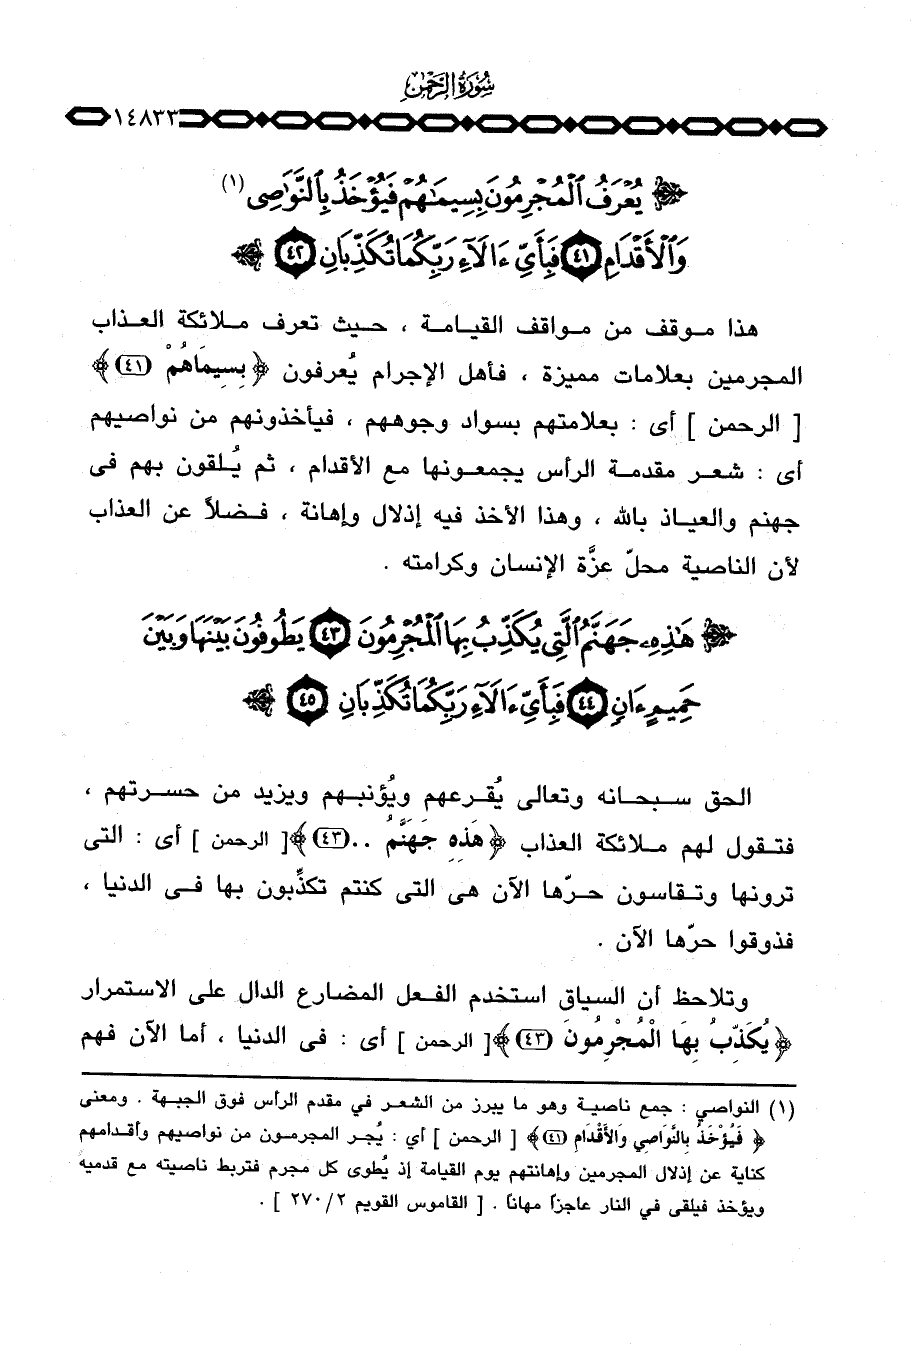 سُورَةُ الرَّحْمَٰنِ
١٤٨٣٣
﴿ يُعْرَفُ ٱلْمُجْرِمُونَ بِسِيمَٰهُمْ فَيُؤْخَذُ بِٱلنَّوَٰصِى (١)
وَٱلْأَقْدَامِ ٤١ فَبِأَىِّ ءَالَآءِ رَبِّكُمَا تُكَذِّبَانِ ٤٢ ﴾
هذا موقف من مواقف القيامة ، حيث تعرف ملائكة العذاب
المجرمين بعلامات مميزة ، فأهل الإجرام يُعرفون ﴿ بِسِيمَاهُمْ (٤١) ﴾
[ الرحمن ] أى : بعلامتهم بسواد وجوههم ، فيأخذونهم من نواصيهم
أى : شعر مقدمة الرأس يجمعونها مع الأقدام ، ثم يُلقون بهم فى
جهنم والعياذ بالله ، وهذا الأخذ فيه إذلال وإهانة ، فضلاً عن العذاب
لأن الناصية محلّ عزَّة الإنسان وكرامته .
﴿ هَٰذِهِۦ جَهَنَّمُ ٱلَّتِى يُكَذِّبُ بِهَا ٱلْمُجْرِمُونَ ٤٣ يَطُوفُونَ بَيْنَهَا وَبَيْنَ
حَمِيمٍ ءَانٍ ٤٤ فَبِأَىِّ ءَالَآءِ رَبِّكُمَا تُكَذِّبَانِ ٤٥ ﴾
الحق سبحانه وتعالى يُقرعهم ويُؤنبهم ويزيد من حسرتهم ،
فتقول لهم ملائكة العذاب ﴿ هَذِهِ جَهَنَّمُ .. (٤٣) ﴾ [ الرحمن ] أى : التى
ترونها وتقاسون حرّها الآن هى التى كنتم تكذِّبون بها فى الدنيا ،
فذوقوا حرّها الآن .
وتلاحظ أن السياق استخدم الفعل المضارع الدال على الاستمرار
﴿ يُكَذِّبُ بِهَا الْمُجْرِمُونَ (٤٣) ﴾ [ الرحمن ] أى : فى الدنيا ، أما الآن فهم
(١) النواصي : جمع ناصية وهو ما يبرز من الشعر في مقدم الرأس فوق الجبهة . ومعنى
﴿ فَيُؤْخَذُ بِالنَّوَاصِي وَالأَقْدَامِ (٤١) ﴾ [ الرحمن ] أي : يُجر المجرمون من نواصيهم وأقدامهم
كناية عن إذلال المجرمين وإهانتهم يوم القيامة إذ يُطوى كل مجرم فتربط ناصيته مع قدميه
ويؤخذ فيلقى في النار عاجزاً مهاناً . [ القاموس القويم ٢/ ٢٧٠ ] .